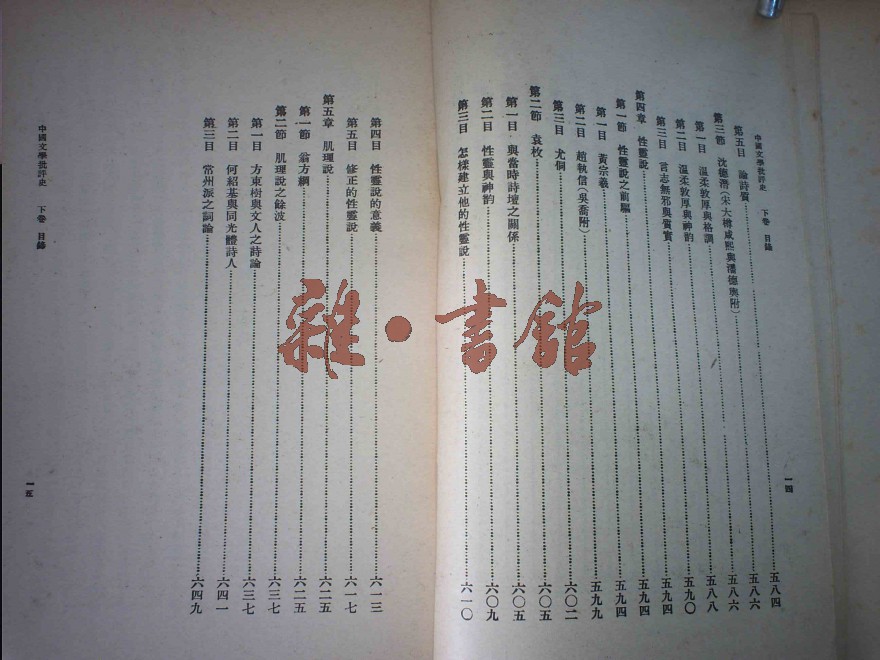 中國文學批評史　下卷　目錄
一四
第五目　論詩質……五八四
第三節　沈德潛（宋大樽咸熙與潘德輿附）……五八六
第一目　溫柔敦厚與格調……五八六
第二目　溫柔敦厚與神韵……五八八
第三目　言志無邪與質實……五九〇
第四章　性靈說……五九四
第一節　性靈說之前驅……五九四
第一目　黃宗羲……五九四
第二目　趙執信（吳喬附）……五九九
第三目　尤侗……六〇二
第二節　袁枚……六〇五
第一目　與當時詩壇之關係……六〇五
第二目　性靈與神韵……六〇九
第三目　怎樣建立他的性靈說……六一〇
第四目　性靈說的意義……六一三
第五目　修正的性靈說……六一七
第五章　肌理說……六二五
第一節　翁方綱……六二五
第二節　肌理說之餘波……六三七
第一目　方東樹與文人之詩論……六三七
第二目　何紹基與同光體詩人……六四一
第三目　常州派之詞論……六四九
中國文學批評史　下卷　目錄
一五
雜·書館